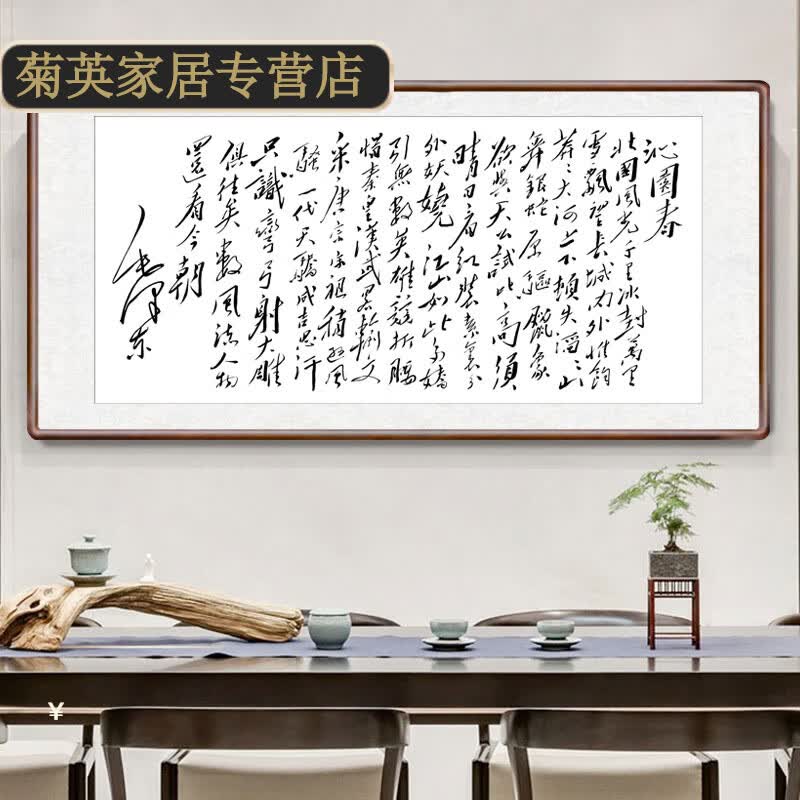 菊英家居专营店
沁園春
北國風光千里冰封萬里
雪飄望長城內外惟餘
莽々大河上下頓失滔々山
舞銀蛇原驅臘象
欲與天公試比高須
晴日看紅裝素裹分
外妖嬈江山如此多嬌
引無數英雄競折腰
惜秦皇漢武略輸文
采唐宗宋祖稍遜風
騷一代天驕成吉思汗
只識彎弓射大雕
俱往矣數風流人物
還看今朝
毛澤東
¥